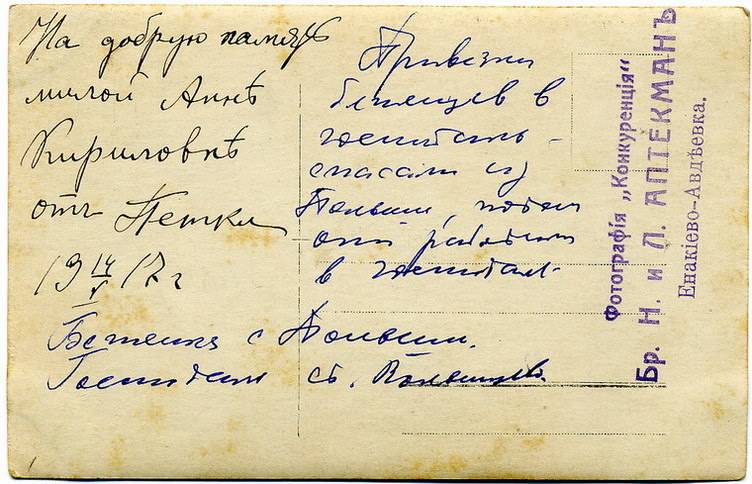 На добрую память
милой Аннѣ
Кириловнѣ
отъ Петки
19 14/V 17 г
Беженка с Польши.
Госпиталь ст.
Привезли
беженцев в
госпиталь -
спасали из
Польши, потом
они работали
в госпитале
Фотографія „Конкуренція"
Бр. Н. и Л. АПТЕКМАНЪ
Енакіево-Авдѣевка.